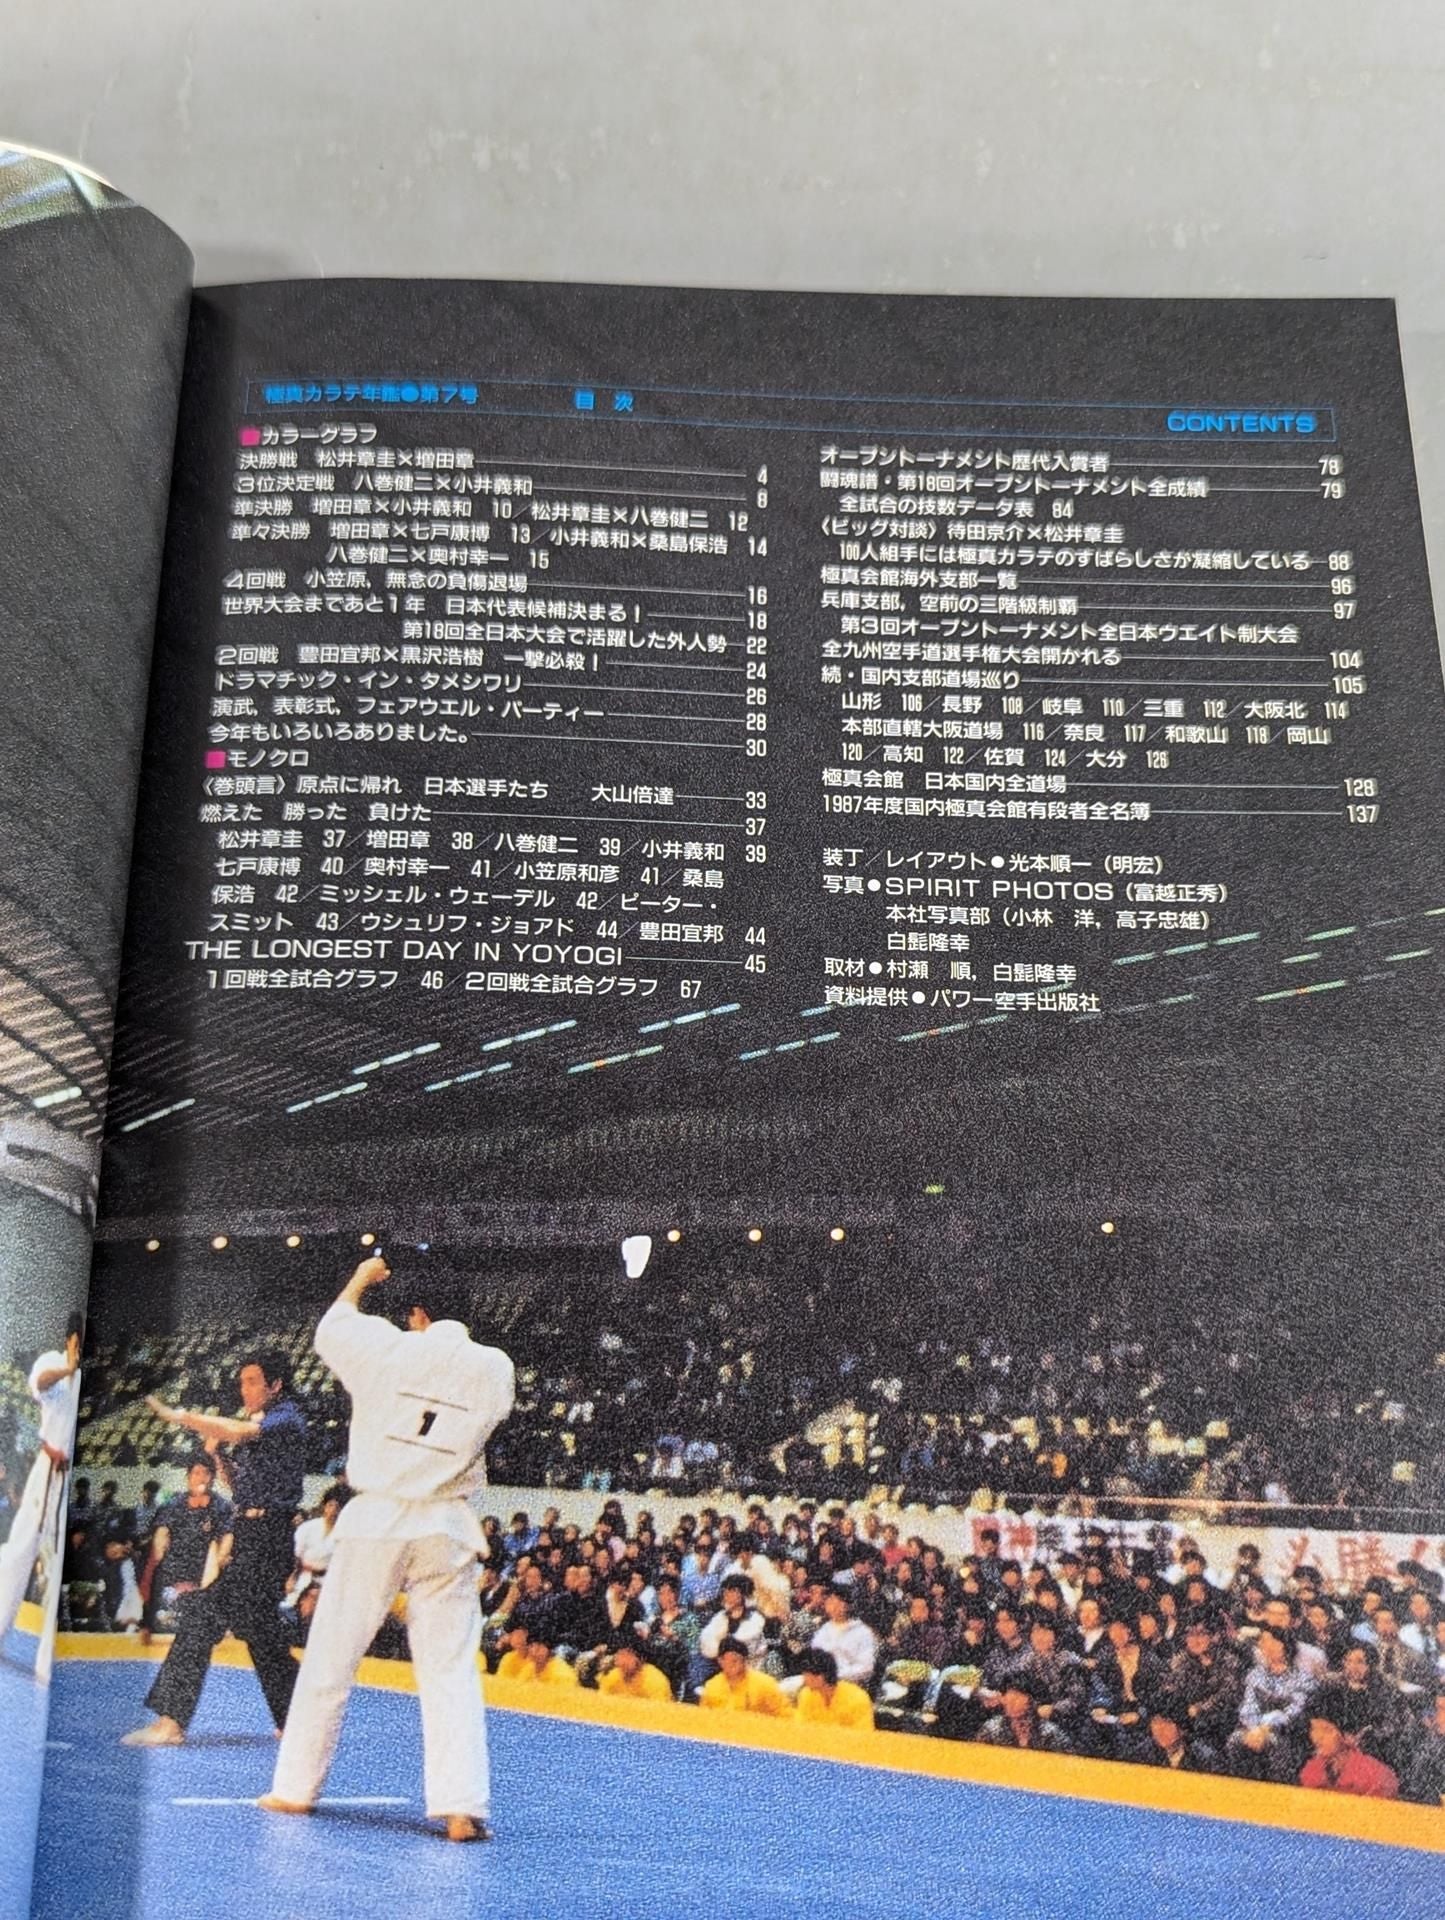 極真カラテ年鑑●第7号 目次 CONTENTS
■カラーグラフ
決勝戦 松井章圭×増田章 4
3位決定戦 八巻健二×小井義和 8
準決勝 増田章×小井義和 10／松井章圭×八巻健二 12
準々決勝 増田章×七戸康博 13／小井義和×桑島保浩 14
八巻健二×奥村幸一 15
4回戦 小笠原，無念の負傷退場 16
世界大会まであと1年 日本代表候補決まる！ 18
第18回全日本大会で活躍した外人勢 22
2回戦 豊田宜邦×黒沢浩樹 一撃必殺！ 24
ドラマチック・イン・タメシワリ 26
演武，表彰式，フェアウエル・パーティー 28
今年もいろいろありました。 30
■モノクロ
〈巻頭言〉原点に帰れ 日本選手たち 大山倍達 33
燃えた 勝った 負けた 37
松井章圭 37／増田章 38／八巻健二 39／小井義和 39
七戸康博 40／奥村幸一 41／小笠原和彦 41／桑島
保浩 42／ミッシェル・ウェーデル 42／ピーター・
スミット 43／ウシュリフ・ジョアド 44／豊田宜邦 44
THE LONGEST DAY IN YOYOGI 45
1回戦全試合グラフ 46／2回戦全試合グラフ 67
オープントーナメント歴代入賞者 78
闘魂譜・第18回オープントーナメント全成績 79
全試合の技数データ表 84
〈ビッグ対談〉待田京介×松井章圭
100人組手には極真カラテのすばらしさが凝縮している 88
極真会館海外支部一覧 96
兵庫支部，空前の三階級制覇 97
第3回オープントーナメント全日本ウエイト制大会
全九州空手道選手権大会開かれる 104
続・国内支部道場巡り 105
山形 106／長野 108／岐阜 110／三重 112／大阪北 114
本部直轄大阪道場 116／奈良 117／和歌山 118／岡山
120／高知 122／佐賀 124／大分 126
極真会館 日本国内全道場 128
1987年度国内極真会館有段者全名簿 137
装丁／レイアウト●光本順一（明宏）
写真●SPIRIT PHOTOS（富越正秀）
本社写真部（小林 洋，高子忠雄）
白髭隆幸
取材●村瀬 順，白髭隆幸
資料提供●パワー空手出版社
1